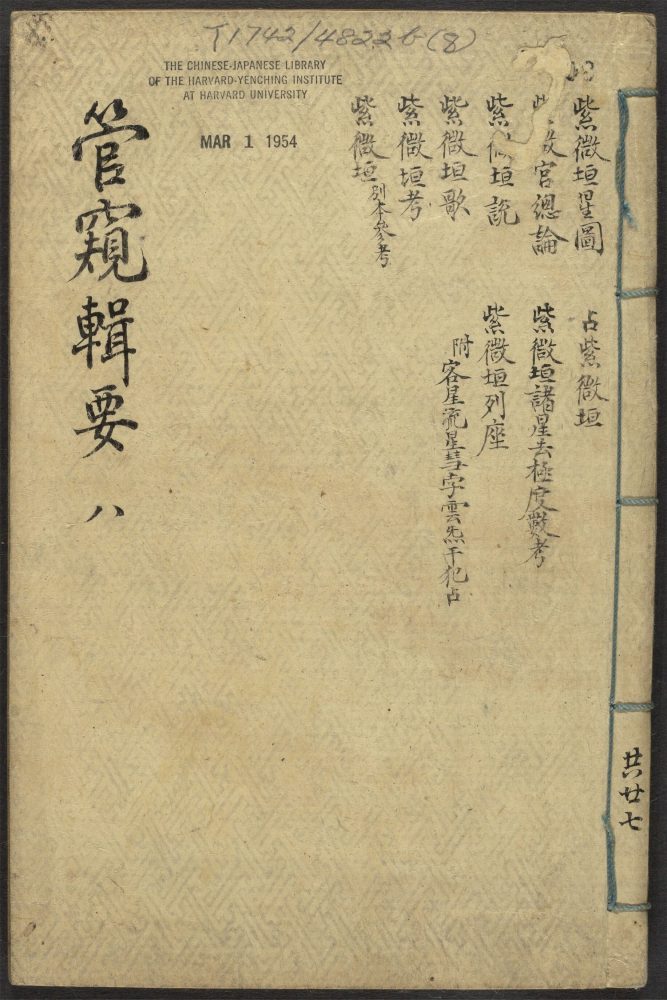 T1742/4822b(8)
THE CHINESE-JAPANESE LIBRARY
OF THE HARVARD-YENCHING INSTITUTE
AT HARVARD UNIVERSITY
MAR 1 1954
紫微垣星圖
宮總論
紫微垣說
紫微垣歌
紫微垣考
紫微垣列本參考
占紫微垣
紫微垣諸星去極度數考
紫微垣列座
附客星流星彗孛雲炁干犯占
管窺輯要 八
共廿七